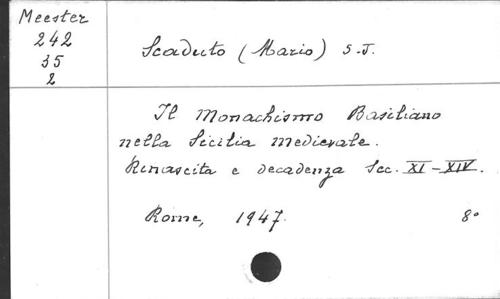 Meester
242
35
2
Scaduto (Mario) S.J.
Il Monachismo Basiliano
nella Sicilia medievale.
Rinascita e decadenza Sec. XI-XIV.
Rome, 1947. 8°